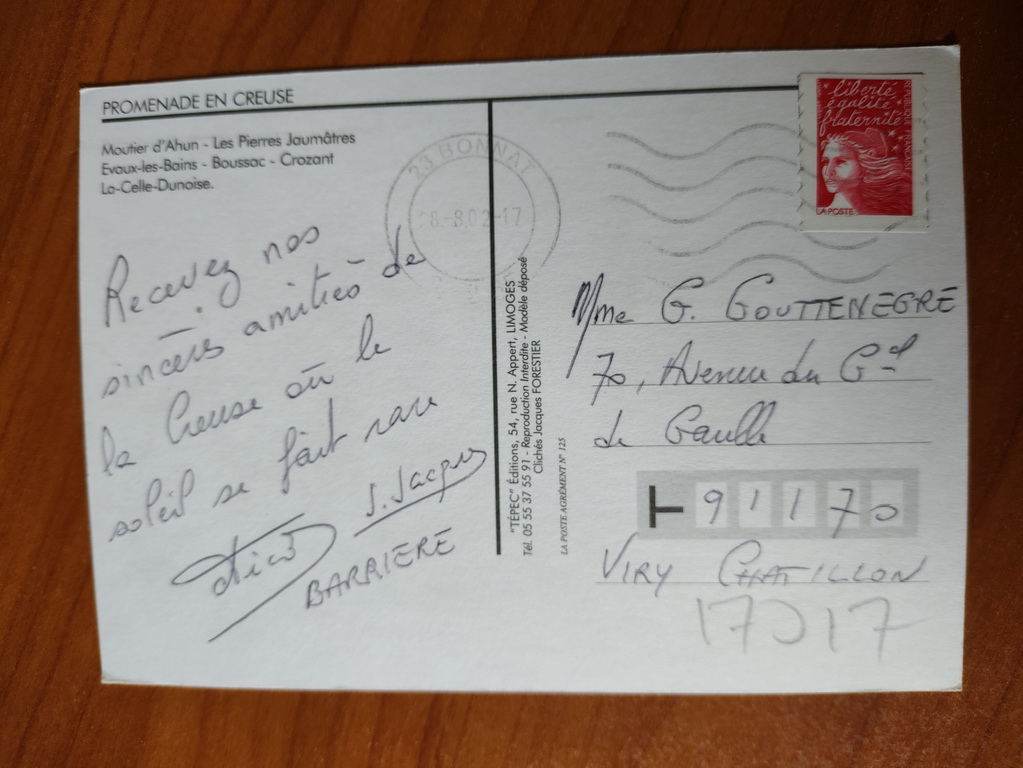 PROMENADE EN CREUSE
Moutier d'Ahun - Les Pierres Jaumâtres
Evaux-les-Bains - Boussac - Crozant
La-Celle-Dunoise.
Recevez nos
sincères amitiés de
la Creuse où le
soleil se fait rare
J. Jacques
BARRIÈRE
"TÉPEC" Éditions, 54, rue N. Appert, LIMOGES
Tél. 05 55 37 55 91 - Reproduction Interdite - Modèle déposé
Clichés Jacques FORESTIER
LA POSTE AGRÉMENT N° 125
23 BONNAT
8-8.02-17
liberté
égalité
fraternité
RÉPUBLIQUE FRANÇAISE
LA POSTE
Mme G. GOUTTENEGRE
70, Avenue du Gal
de Gaulle
91170
VIRY CHATILLON
17017